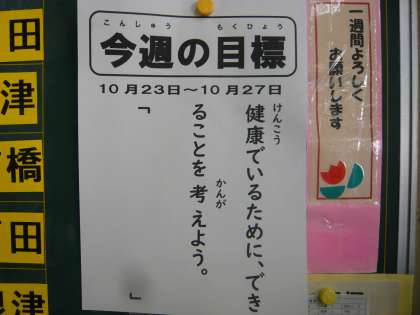 こんしゅう もくひょう
今週の目標
10月23日～10月27日
けんこう
健康でいるために、でき
かんが
ることを考えよう。
「
」
一週間よろしく
お願いします
田
津
橋
田
津